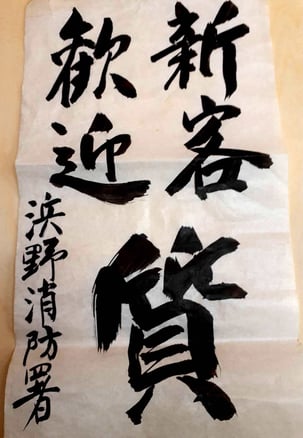 新客
質
歓迎
浜野消防署